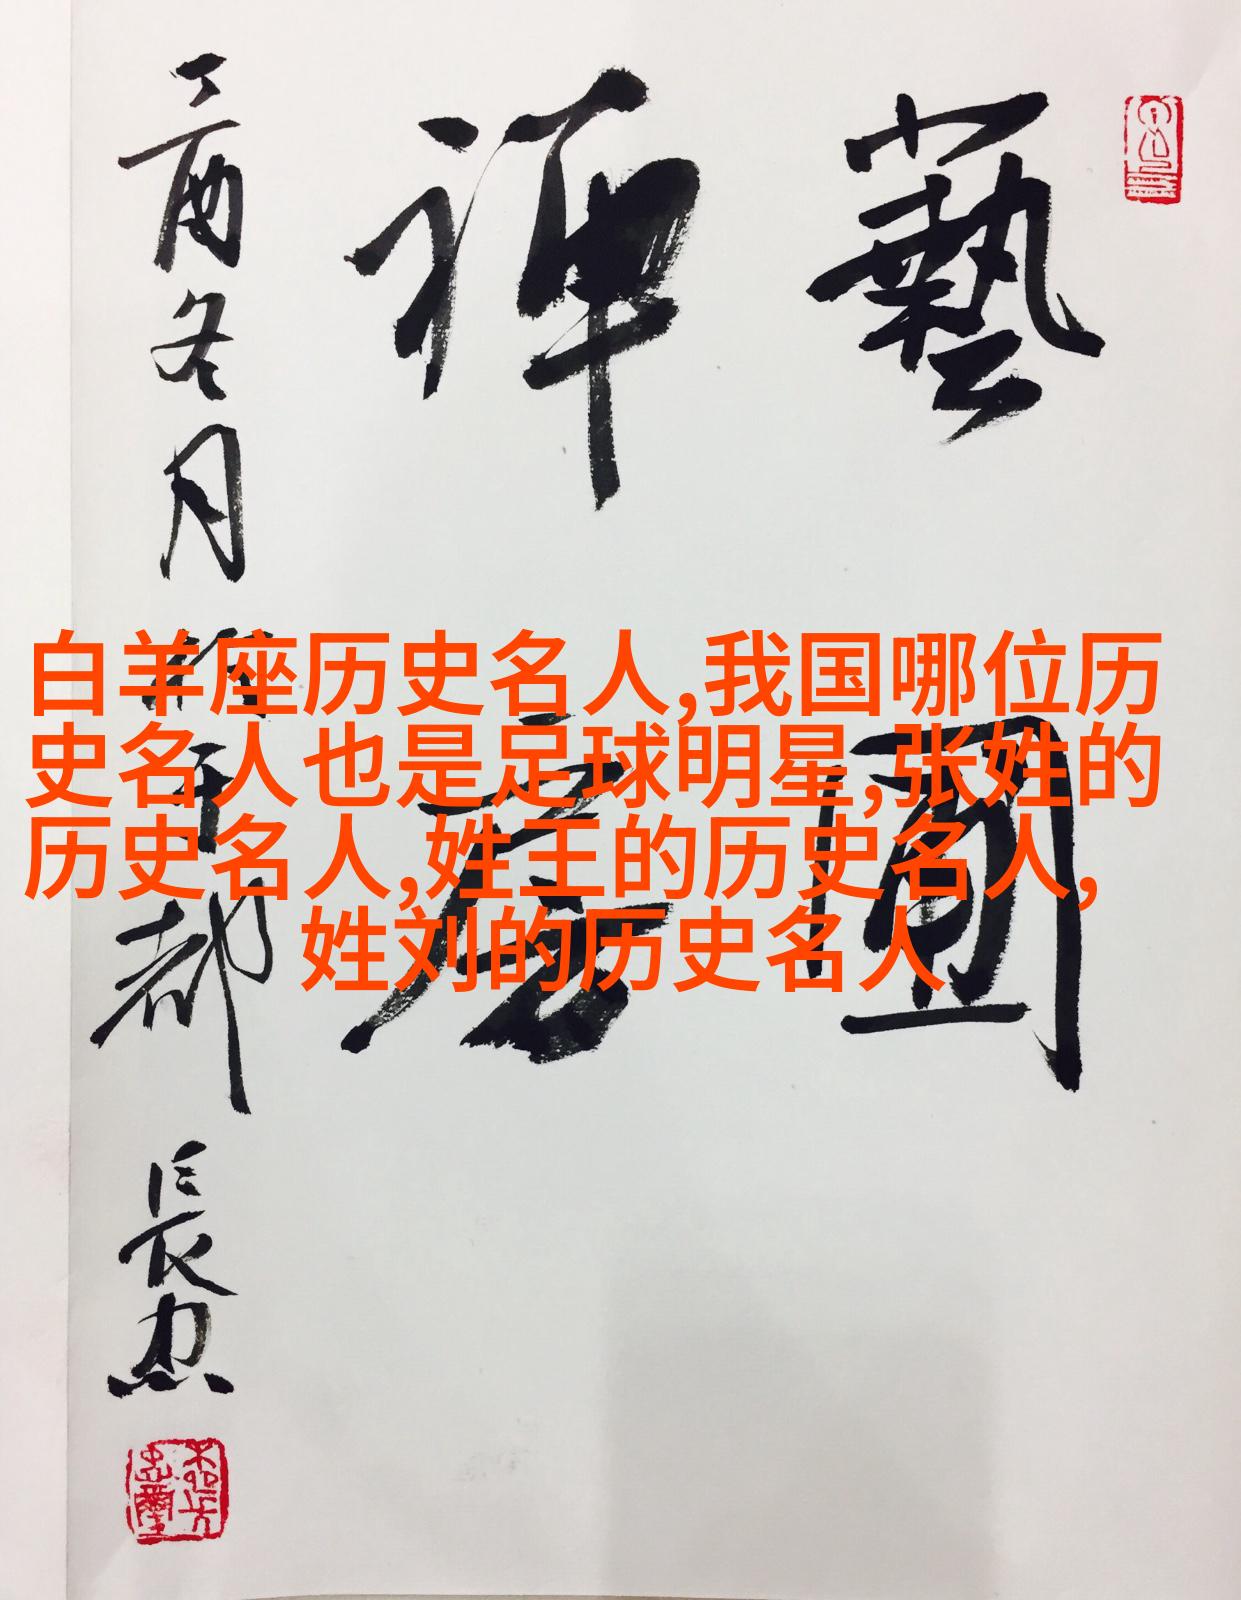 藝
禅
丁酉冬月
都
長
白羊座历史名人,我国哪位历
史名人也是足球明星,张姓的
历史名人,姓王的历史名人,
姓刘的历史名人